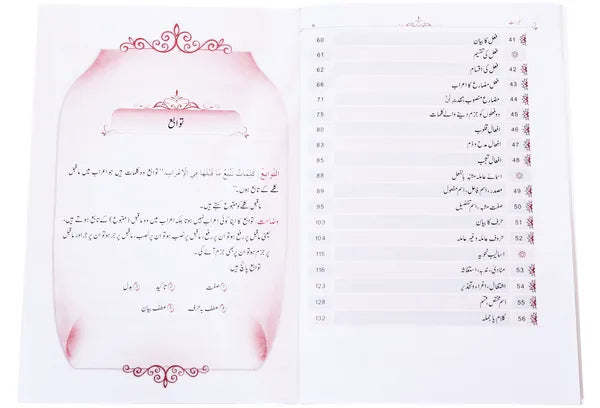 41 فعل کا بیان 60
فعل کی تقسیم 61
42 فعل کی اقسام 62
43 فعل مضارع کا اعراب 64
44 مضارع منصوب بتقدیر أن 71
45 دو فعلوں کو جزم دینے والے کلمات 75
46 افعال قلوب 80
47 افعال مدح و ذم 83
48 افعال تعجب 85
اسمائے عاملہ مشبہ بالفعل 88
49 مصدر، اسم فاعل، اسم مفعول 89
50 صفت مشبہ، اسم تفضیل 95
51 حرف کا بیان 103
52 حروف عاملہ و غیر عاملہ
اسالیب نحویہ 115
53 منادی، ندبہ، استغاثہ 116
54 اشتغال، اغراء و تحذیر
55 اسم مختص، قسم 128
56 کلام یا جملہ 132
توابع
التَّوَابِعُ: كَلِمَاتٌ تَتْبَعُ مَا قَبْلَهَا فِي الْإِعْرَابِ. ’’توابع وہ کلمات ہیں جو اعراب میں ماقبل
کلمے کے تابع ہوں۔‘‘
ماقبل کلمے کو متبوع کہتے ہیں۔
وضاحت: توابع کا اپنا کوئی اعراب نہیں ہوتا بلکہ اعراب میں وہ ماقبل (متبوع) کے تابع ہوتے ہیں،
یعنی ماقبل پر رفع ہو تو ان پر رفع، ماقبل پر نصب ہو تو ان پر نصب، ماقبل پر جر ہو تو ان پر جر اور ماقبل
پر جزم ہو تو ان پر بھی جزم آئے گی۔
توابع پانچ ہیں:
صفت تاکید بدل
عطف بہ حرف عطف بیان